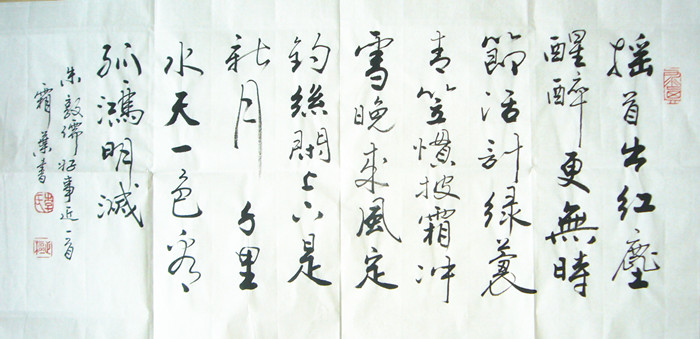 摇首出红塵
醒醉更無時
節活计绿蓑
青笠惯披霜冲
雪晚来風定
钓絲閑上下是
新月千里
水天一色看
孤鴻明滅
朱敦儒好事近一首
霜葉書